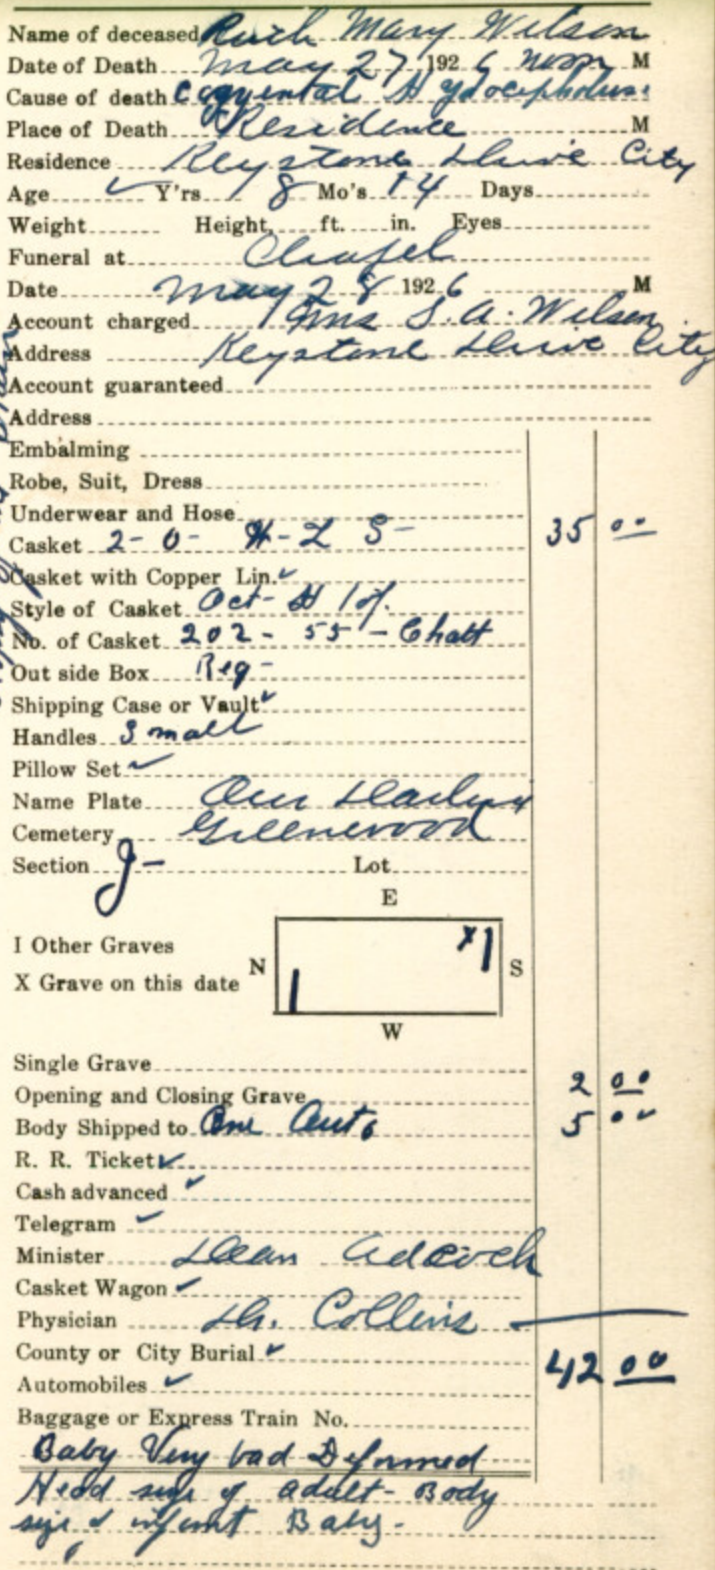 Name of deceased Ruth Mary Wilson
Date of Death May 27 1926 noon M
Cause of death Cogenental Hydocepholus.
Place of Death Residence M
Residence Keystone Drive City
Age ✓ Y'rs 8 Mo's 14 Days
Weight Height ft. in. Eyes
Funeral at Chapel
Date May 28 1926 M
Account charged Mrs S. A. Wilson
Address Keystone Drive City
Account guaranteed
Address
Embalming
Robe, Suit, Dress
Underwear and Hose
Casket 2-0- H-L S- 35 00
Casket with Copper Lin. ✓
Style of Casket Oct-
No. of Casket 202 - 55 - Chatt
Out side Box Reg-
Shipping Case or Vault ✓
Handles Small
Pillow Set ✓
Name Plate Our Darling
Cemetery Greenwood
Section J- Lot
E
I Other Graves
N X S
X Grave on this date
W
Single Grave
Opening and Closing Grave 2 00
Body Shipped to One Auto 5 00
R. R. Ticket ✓
Cash advanced ✓
Telegram ✓
Minister Dean Adcock
Casket Wagon ✓
Physician Dr. Collins
County or City Burial ✓ 42 00
Automobiles ✓
Baggage or Express Train No.
Baby Very bad Deformed
Head size of adult - Body
size of infant Baby -